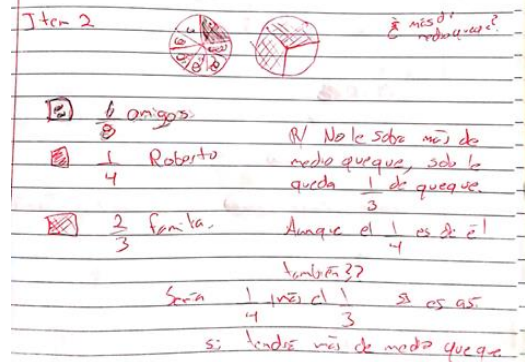 Item 2
¿ más de medio queque?
6/8 amigos.
1/4 Roberto
2/3 familia.
R/ No le sobra más de
medio queque, solo le
queda 1/3 de queque.
Aunque el 1/4 es de él
también??
Sería 1/4 más el 1/3 si es así
si tendría más de medio queque